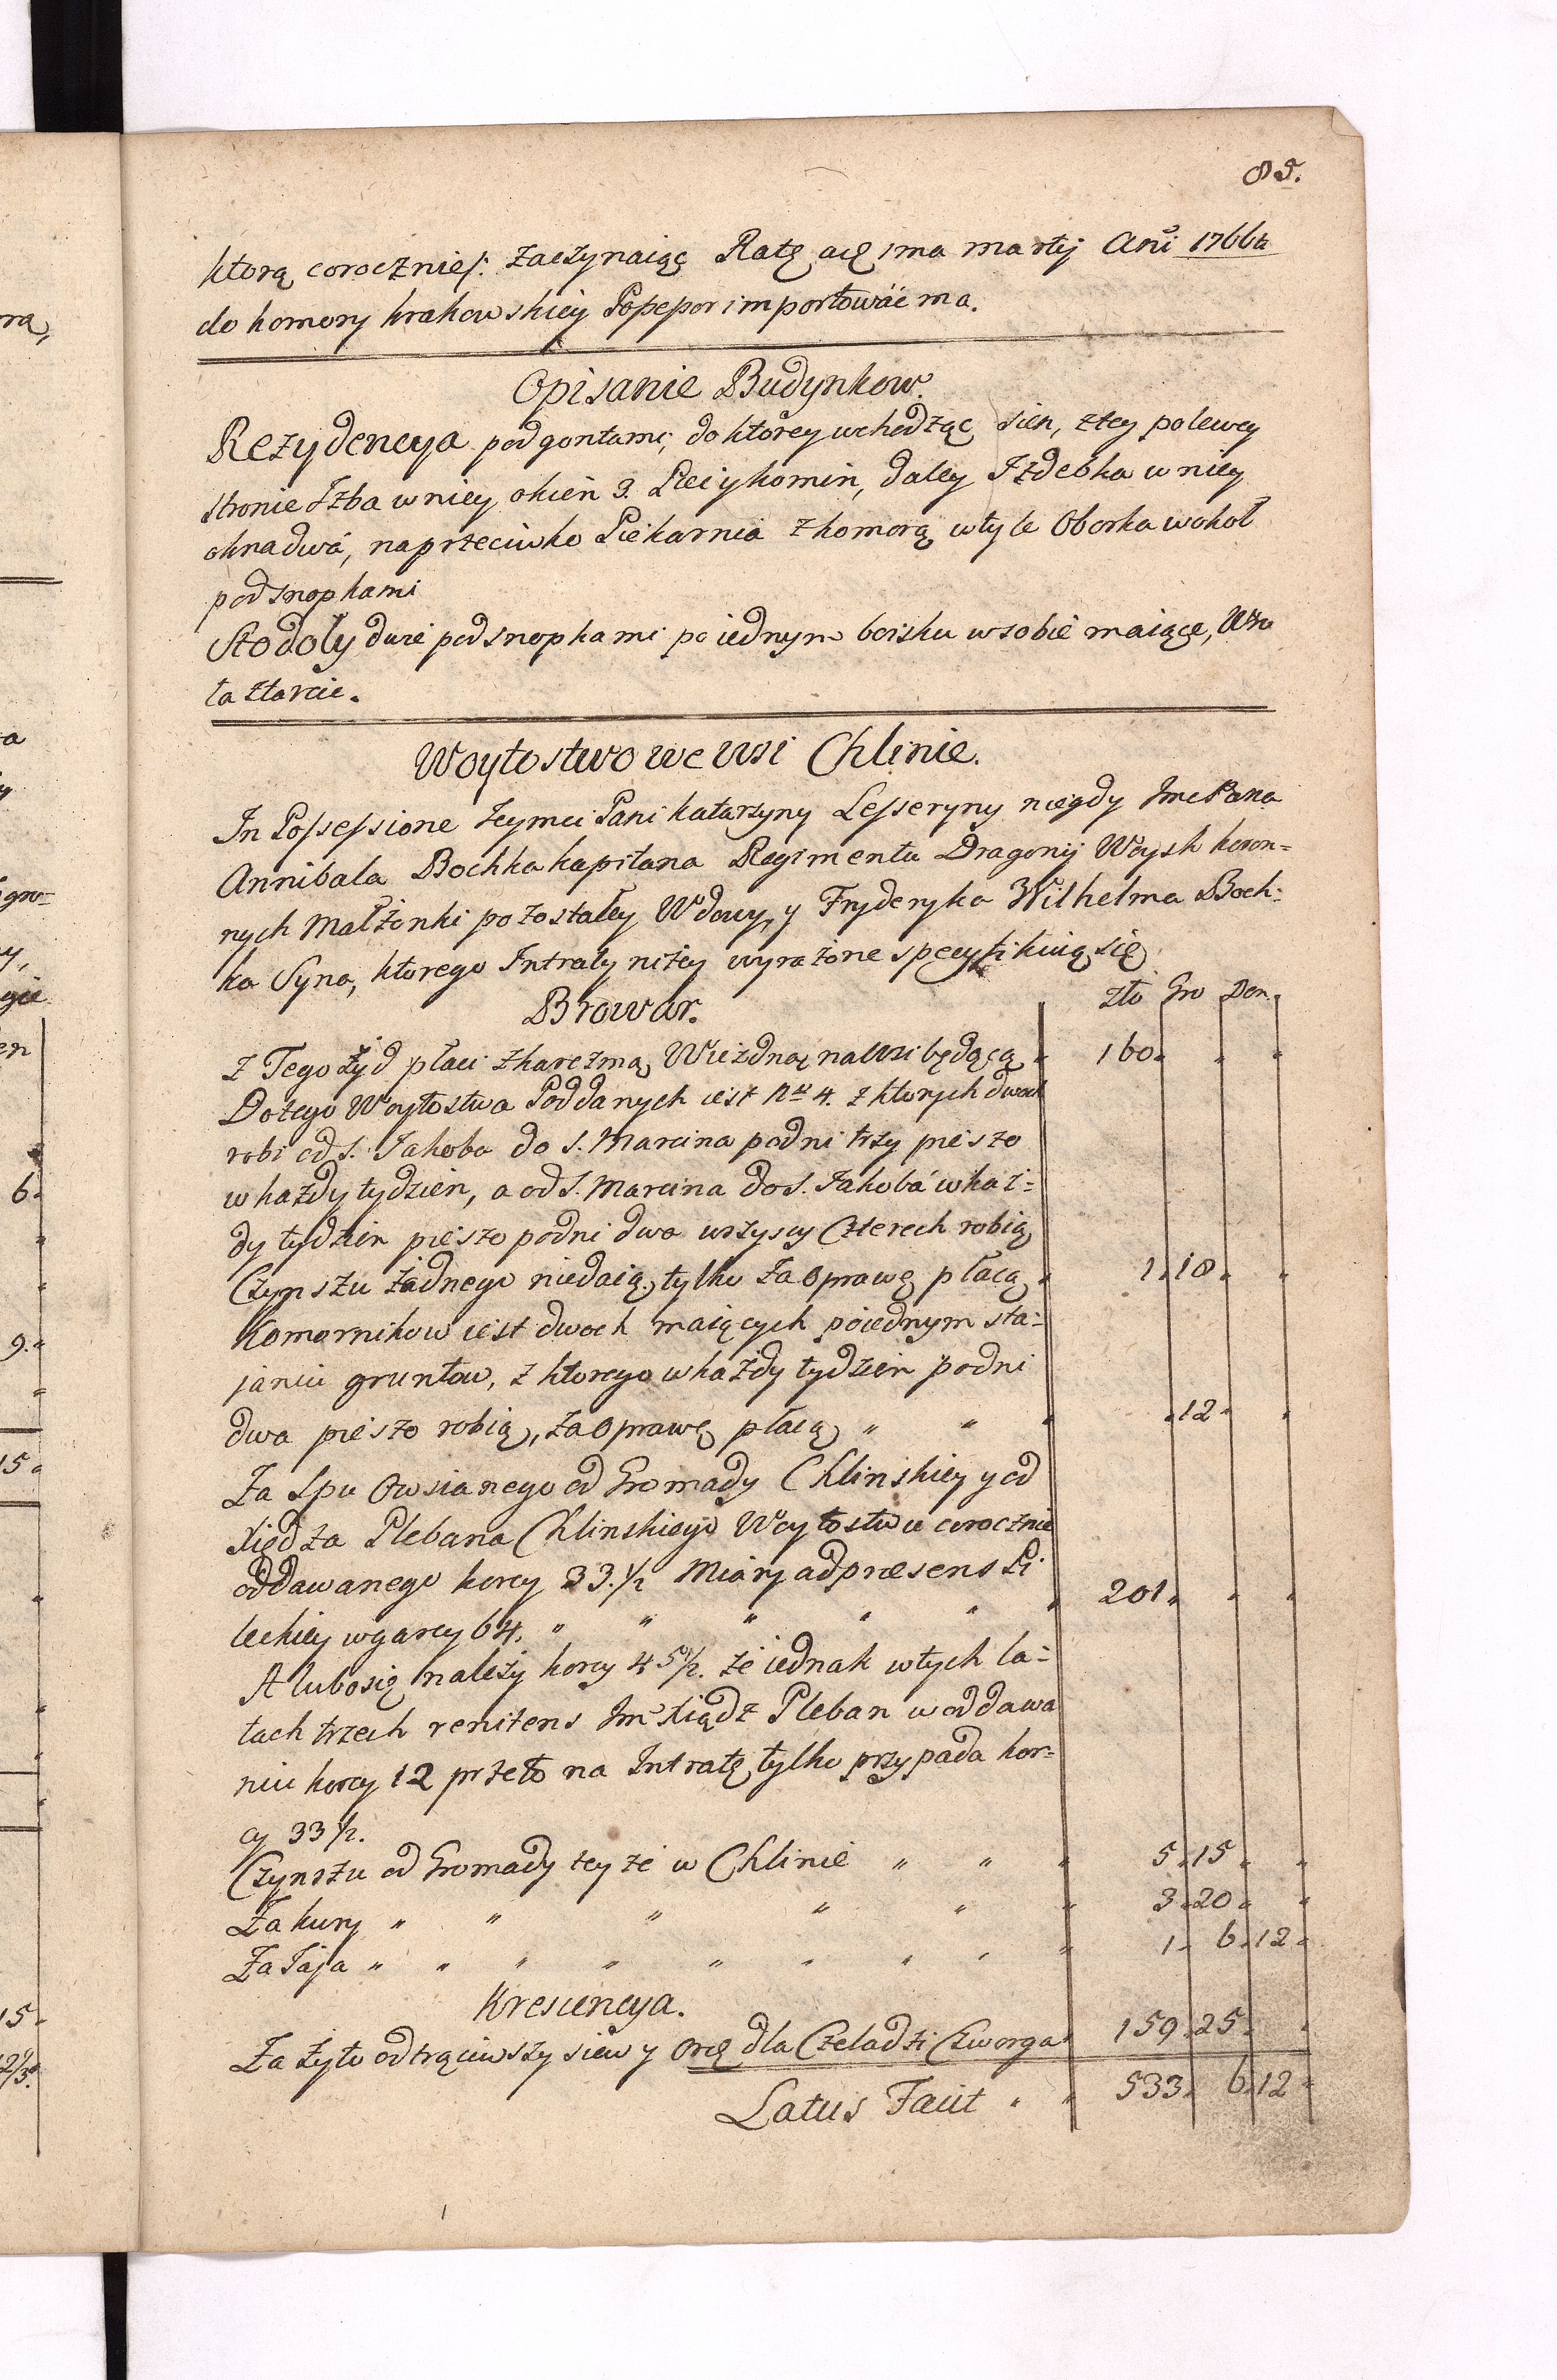 85.
ktorą corocznie/: zaczynaiąc Ratę a 1ma martij Añi 1766to
do komory krakowskiey Possessor importować ma.
Opisanie Budynkow.
Rezydencya pod gontami, do ktorey wchodząc sien, z tey po lewey
stronie Izba w niey okien 3. Piec y komin, daley Izdebka w niey
okna dwa, naprzeciwko Piekarnia z komorą w tyle Oborka wokoł
pod snopkami
Stodoły dwie pod snopkami po iednym boisku w sobie maiące, Wro
ta z tarcic.
Woytostwo we wsi Chlinie.
In Possessione Jeymci Pani Katarzyny Lesseryny niegdy Imc Pana
Annibala Bochka kapitana Regimentu Dragonij Woysk koron=
nych Małżonki pozostałey Wdowy, y Fryderyka Wilhelma Boch=
ka Syna, ktorego Intraty niżey wyrażone specyfikuią się
Browar. zło Gro Den.
z Tego Żyd płaci z karczmą Wiezdną na wsi będącą " 160 " "
Do tego Woytostwa Poddanych iest Nro 4. z ktorych dwoch
robi od S. Jakoba do S. Marcina po dni trzy pieszo
w każdy tydzien, a od S. Marcina do S. Jakoba w każ=
dy tydzien pieszo po dni dwa wszyscy Czterech robią
Czynszu żadnego niedaią, tylko za oprawę płacą " 1 18 "
Komornikow iest dwoch maiących po iednym sta=
janiu gruntow, z ktorego w każdy tydzien po dni
dwa pieszo robią, za oprawę płacą " " " " 12 "
Za Spu Owsianego od Gromady Chlinskiey y od
Xiędza Plebana Chlinskiego Woytostwu corocznie
oddawanego korcy 33. 1/2 Miary ad præsens Pi
leckiey w garcy 64. " " " " " " 201 " "
A lubo się należy korcy 45 1/2. że iednak w tych la=
tach trzech renitens Jm Xiądz Pleban w oddawa
niu korcy 12 przeto na Intratę tylko przypada kor=
cy 33 1/2.
Czynszu od Gromady teyże w Chlinie " " " 5 15 "
Za kury " " " " " " 3 20 "
Za Jaja " " " " " " " " " 1 6 12
Krescencya.
Za żyto odtrąciwszy siew y Ord. dla Czeladzi Czworga 159 25 "
Latus Facit " " 533 6 12